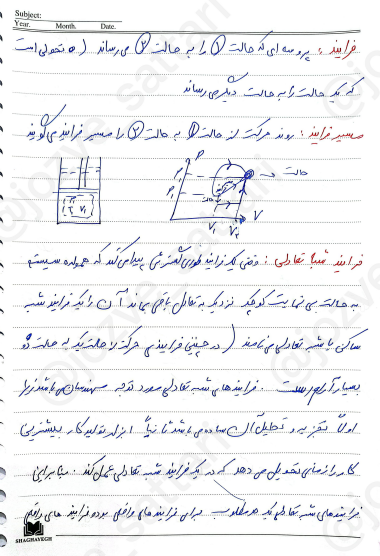 Subject:
Year. Month. Date.
فرایند : پروسه ای که حالت ① را به حالت ② می رساند (تحولی است
که یک حالت را به حالت دیگر می رساند
مسیر فرایند : روند حرکت از حالت ① به حالت ② را مسیر فرایند می گویند
P
حالت
V₁ V₂ V
فرایند شبه تعادلی : وقتی یک فرایند طوری گسترش پیدا می کند که همواره سیستم
به حالت بی نهایت کوچک نزدیک به تعادل باقی بماند آن را یک فرایند شبه
ساکن یا شبه تعادلی می نامند (در چنین فرایندی حرکت از حالت یک به حالت
بسیار آرام است . فرایندهای شبه تعادلی مورد توجه مهندسان می باشد زیرا
اولاً تجزیه و تحلیل آن ساده می باشد ثانیاً ابزار تولید کار بیشترین
کار را زمانی تحویل می دهد که در یک فرایند شبه تعادلی عمل کند . بنابراین
فرایندهای شبه تعادلی یک مطلوب برای فرایند های واقعی بوده فرایند های واقعی
SHAGHAYEGH